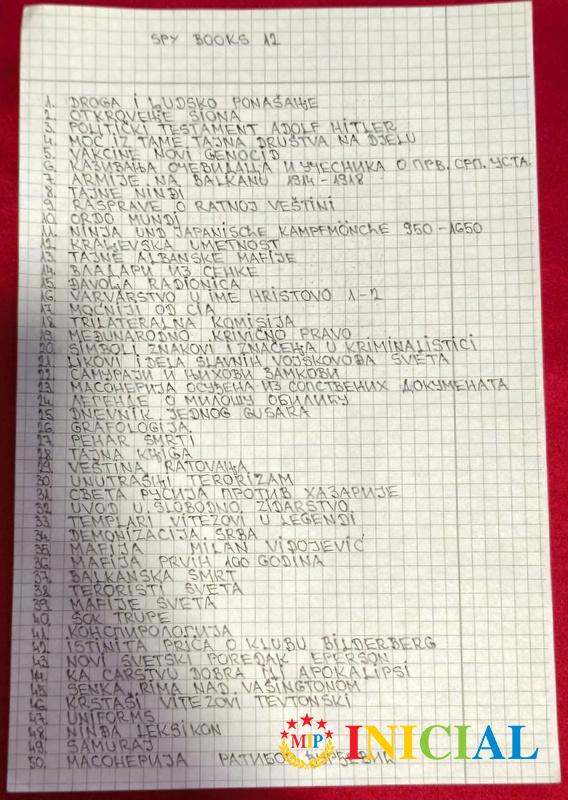 SPY BOOKS 12
1. DROGA i LJUDSKO PONAŠANJE
2. OTKROVENJE SIONA
3. POLITIČKI TESTAMENT ADOLF HITLER
4. MOĆ IZ TAME TAJNA DRUŠTVA NA DJELU
5. VAKCINE NOVI GENOCID
6. КАЗИВАЊА ОЧЕВИДАЦА И УЧЕСНИКА О ПРВ. СРП. УСТА.
7. ARMIJE NA BALKANU 1914-1918
8. TAJNE NINĐI
9. RASPRAVE O RATNOJ VEŠTINI
10. ORDO MUNDI
11. NINJA UND JAPANISCHE KAMPFMÖNCHE 950-1650
12. KRALJEVSKA UMETNOST
13. TAJNE ALBANSKE MAFIJE
14. ВЛАДАРИ ИЗ СЕНКЕ
15. ĐAVOLJA RADIONICA
16. VARVARSTVO U IME HRISTOVO 1-2
17. MOĆNIJI OD CIA
18. TRILATERALNA KOMISIJA
19. MEĐUNARODNO KRIVIČNO PRAVO
20. SIMBOLI ZNAKOVI I ZNAČENJA U KRIMINALISTICI
21. LIKOVI I DELA SLAVNIH VOJSKOVOĐA SVETA
22. САМУРАЈИ И ЊИХОВИ ЗАМКОВИ
23. МАСОНЕРИЈА ОСУЂЕНА ИЗ СОПСТВЕНИХ ДОКУМЕНАТА
24. ЛЕГЕНДЕ О МИЛОШУ ОБИЛИЋУ
25. DNEVNIK JEDNOG GUSARA
26. GRAFOLOGIJA
27. PEHAR SMRTI
28. TAJNA KNJIGA
29. VEŠTINA RATOVANJA
30. UNUTRAŠNJI TERORIZAM
31. СВЕТА РУСИЈА ПРОТИВ ХАЗАРИЈЕ
32. UVOD U SLOBODNO ZIDARSTVO
33. TEMPLARI VITEZOVI U LEGENDI
34. DEMONIZACIJA SRBA
35. MAFIJA MILAN VIDOJEVIĆ
36. MAFIJA PRVIH 100 GODINA
37. BALKANSKA SMRT
38. TERORISTI SVETA
39. MAFIJE SVETA
40. ŠOK TRUPE
41. КОНСПИРОЛОГИЈА
42. ISTINITA PRIČA O KLUBU BILDERBERG
43. NOVI SVETSKI POREDAK EPERSON
44. KA CARSTVU DOBRA ILI APOKALIPSI
45. SENKA RIMA NAD VAŠINGTONOM
46. KRSTAŠI VITEZOVI TEVTONSKI
47. UNIFORMS
48. NINĐA LEKSIKON
49. SAMURAJ
50. МАСОНЕРИЈА РАТИБОР
MIP INICIAL